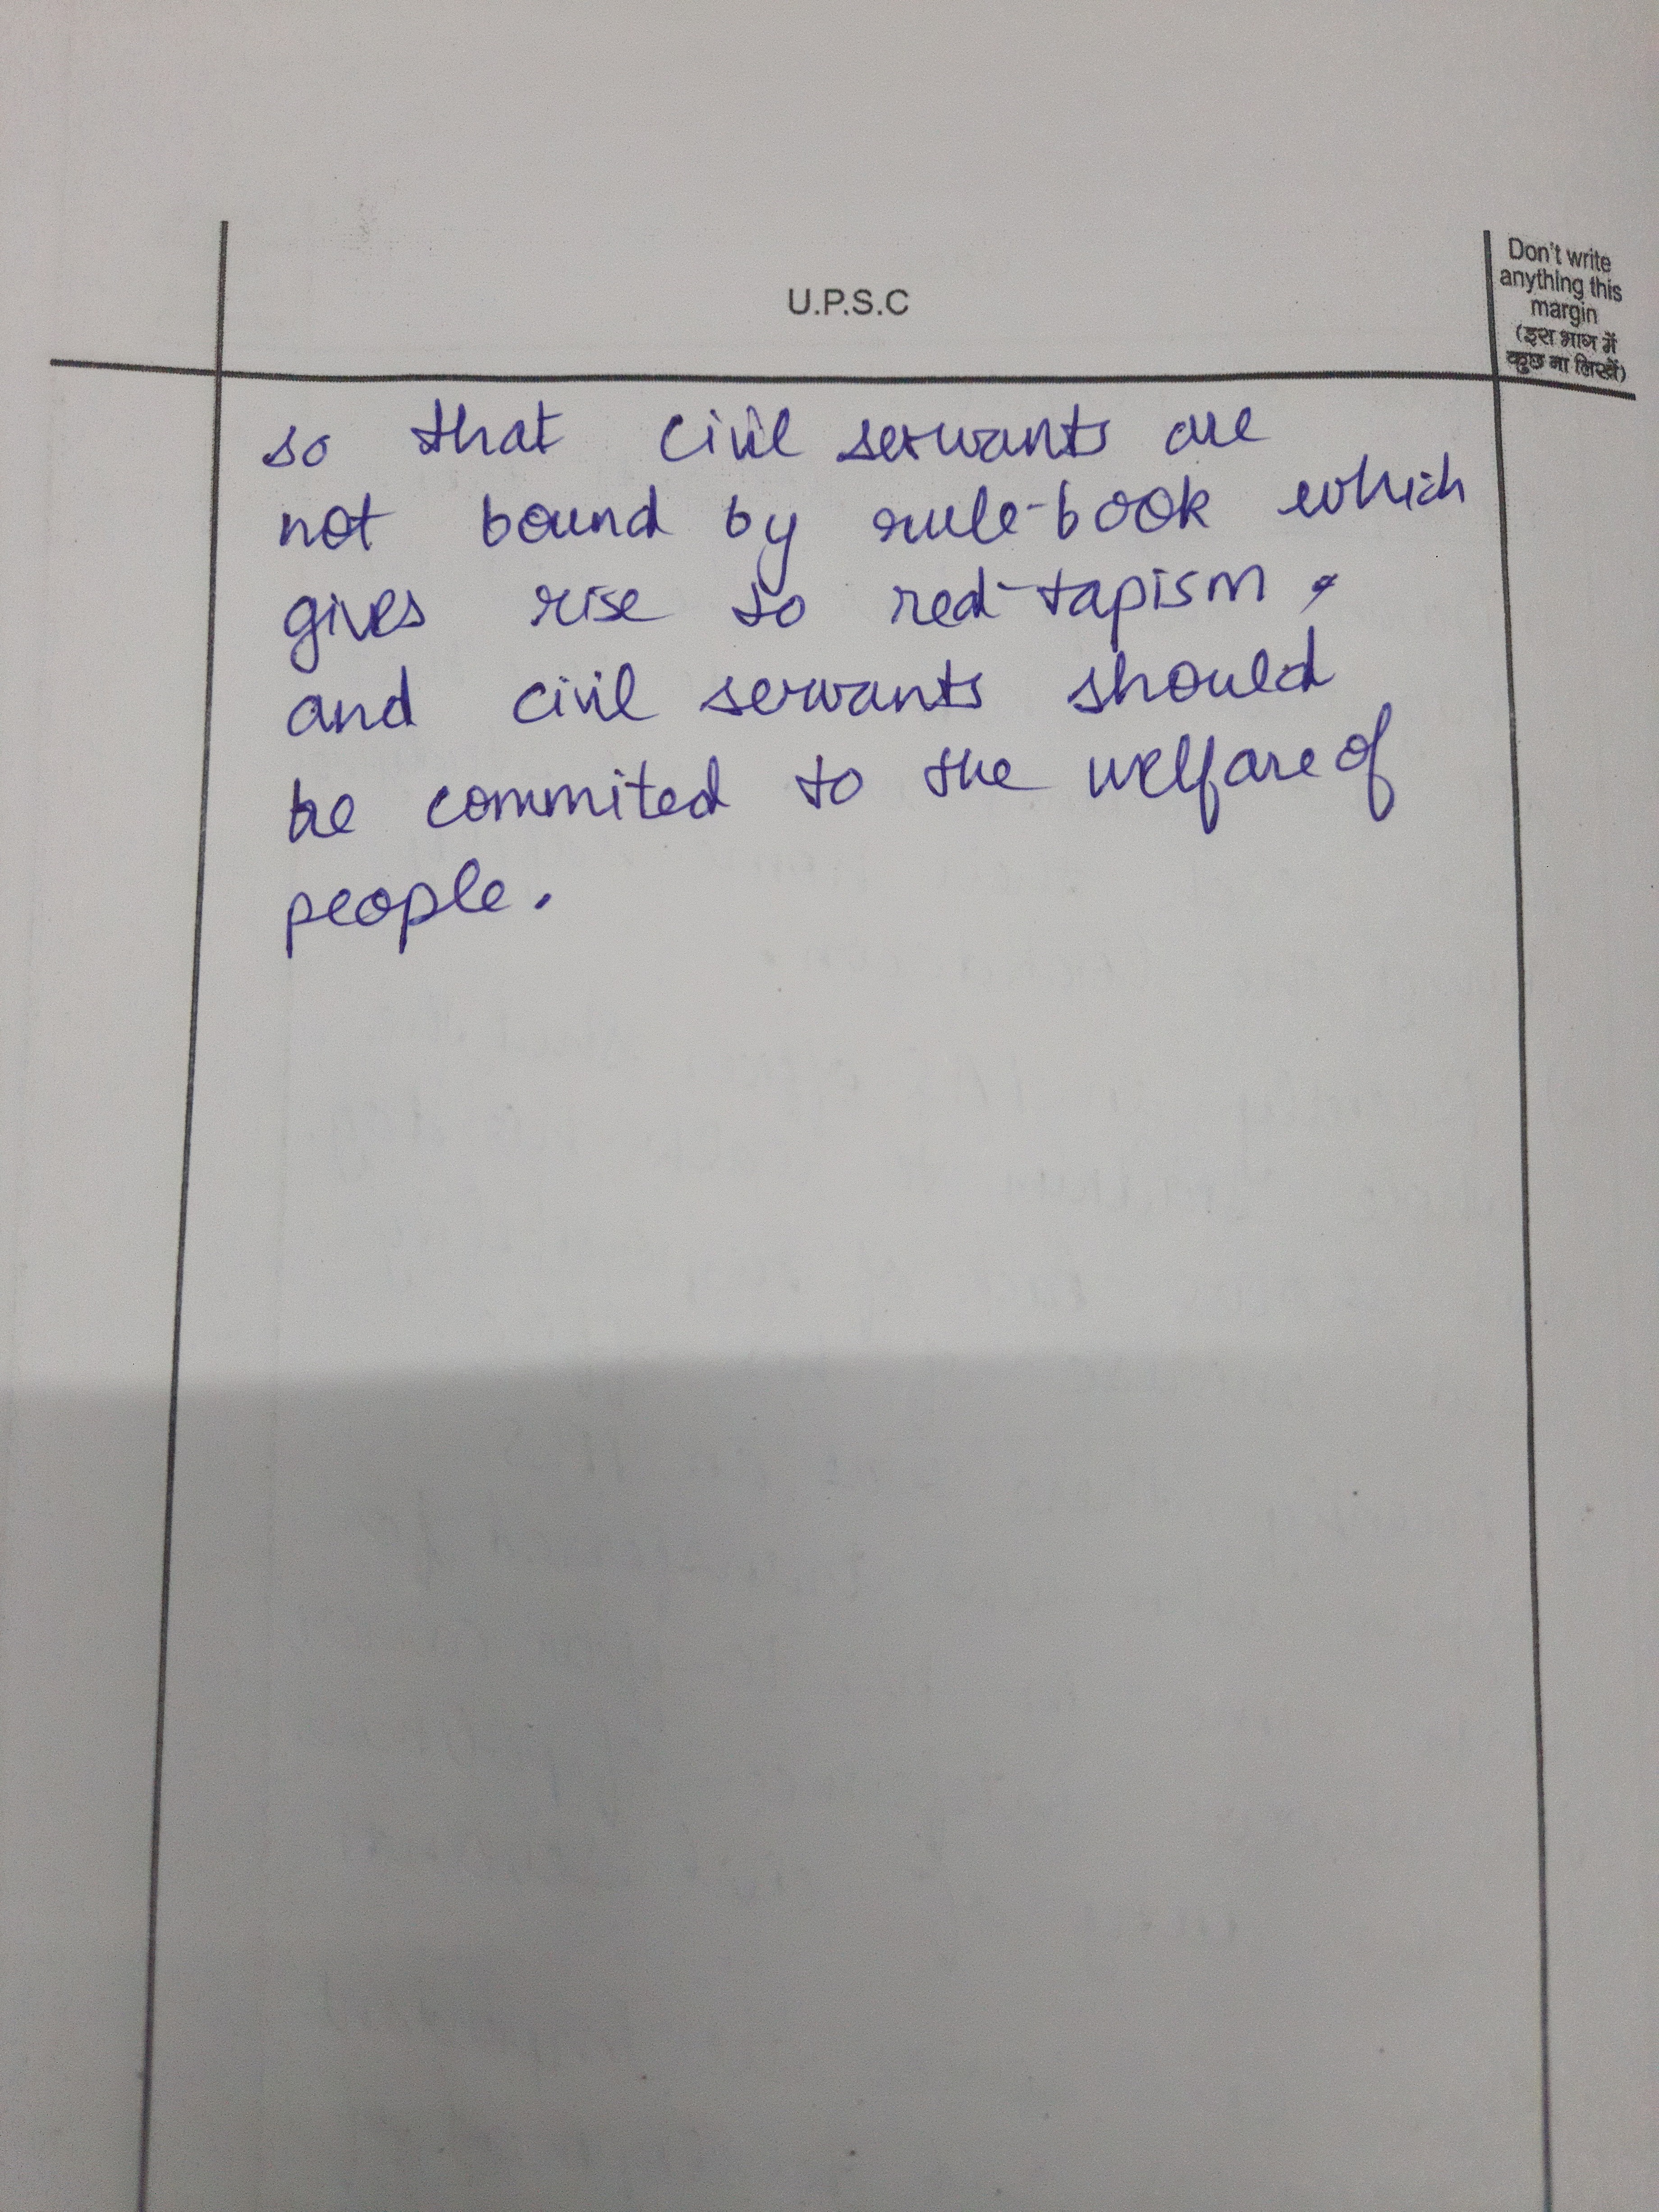 U.P.S.C
Don't write
anything this
margin
(इस भाग में
कुछ ना लिखें)
so that civil servants are
not bound by rule-book which
gives rise to red-tapism,
and civil servants should
be commited to the welfare of
people.